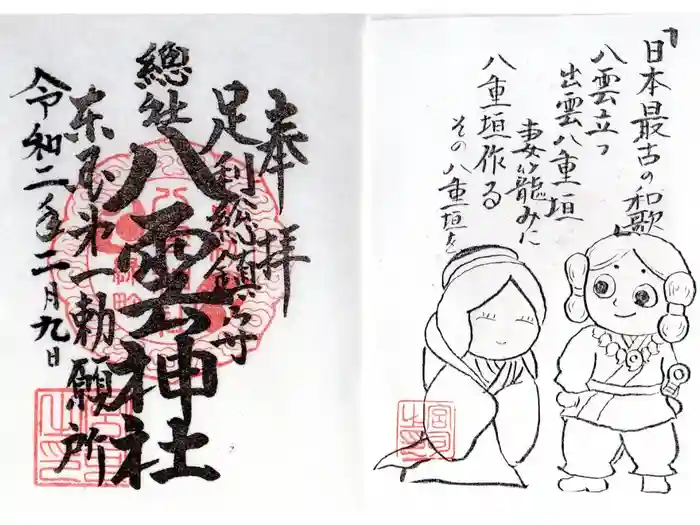 奉拝
足利総鎮守
總社八雲神社
東国第一勅願所
令和二年二月九日
「日本最古の和歌」
八雲立つ
出雲八重垣
妻籠みに
八重垣作る
その八重垣を